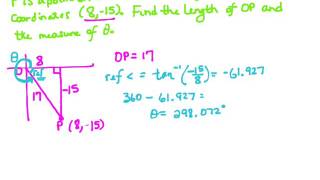 Coordinates (8,-15). Find the length of OP and
the measure of θ.
θ 8 OP = 17
O ref < = tan⁻¹(-15/8) = -61.927
17 -15 360 - 61.927 =
θ = 298.072°
P (8,-15)